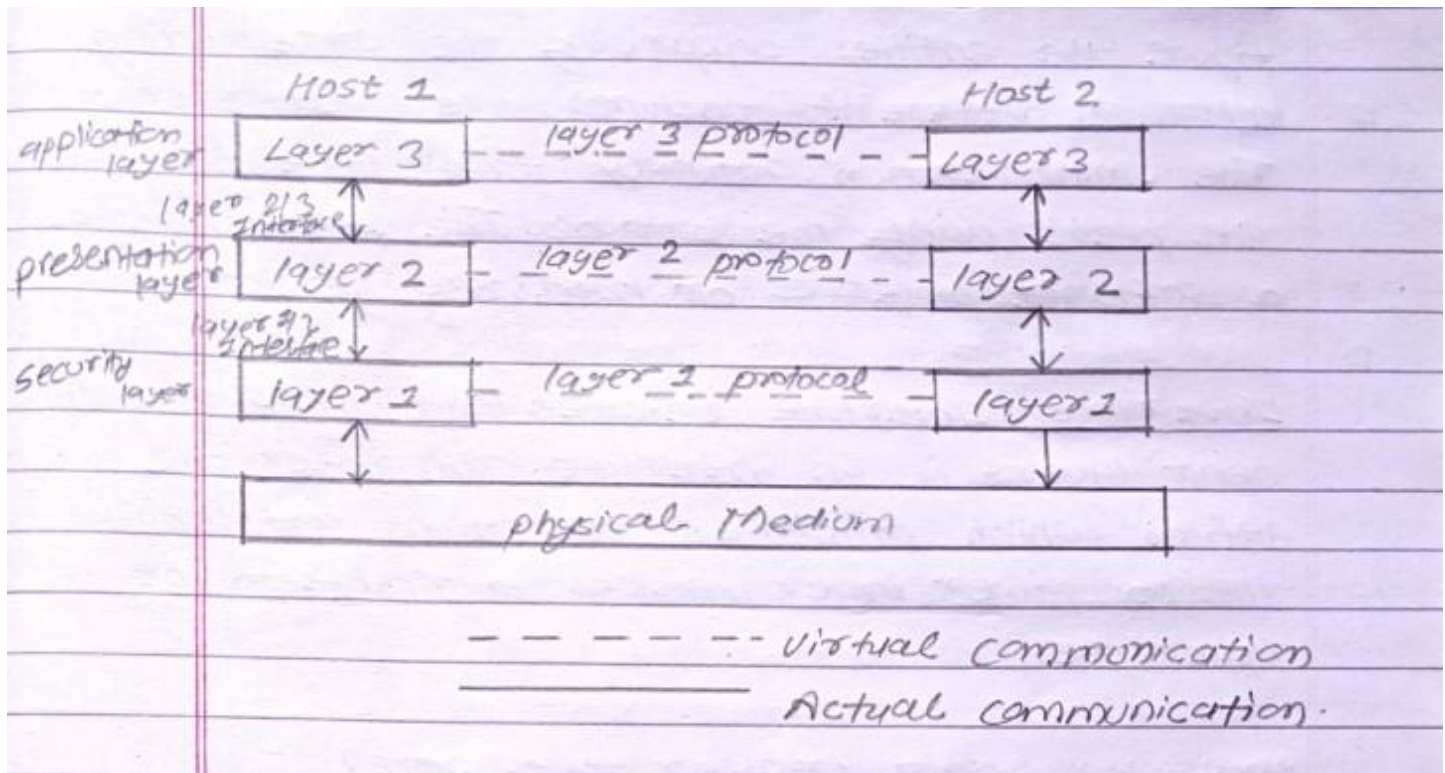 Host 1 Host 2
application
layer
Layer 3 layer 3 protocol Layer 3
layer 2/3
Interface
presentation
layer
layer 2 layer 2 protocol layer 2
layer
Interface
security
layer
layer 1 layer 1 protocol layer 1
physical Medium
virtual communication
Actual communication.